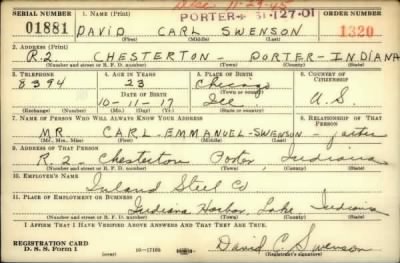 Dec 11-29-45
SERIAL NUMBER 1. NAME (Print) PORTER 31-127-01 ORDER NUMBER
01881 DAVID CARL SWENSON 1320
(First) (Middle) (Last)
2. ADDRESS (Print)
R.2 CHESTERTON - PORTER - INDIANA
(Number and street or R. F. D. number) (Town) (County) (State)
3. TELEPHONE 4. AGE IN YEARS 5. PLACE OF BIRTH 6. COUNTRY OF CITIZENSHIP
8394 23 Chicago
DATE OF BIRTH (Town or county)
10-11-17 Ill. U.S.
(Exchange) (Number) (Mo.) (Day) (Yr.) (State or country)
7. NAME OF PERSON WHO WILL ALWAYS KNOW YOUR ADDRESS 8. RELATIONSHIP OF THAT PERSON
MR CARL-EMMANUEL-SWENSON - father
(Mr., Mrs., Miss) (First) (Middle) (Last)
9. ADDRESS OF THAT PERSON
R. 2 - Chesterton Porter, Indiana
(Number and street or R. F. D. number) (Town) (County) (State)
10. EMPLOYER'S NAME
Inland Steel Co
11. PLACE OF EMPLOYMENT OR BUSINESS
Indiana Harbor, Lake Indiana
(Number and street or R. F. D. number) (Town) (County) (State)
I AFFIRM THAT I HAVE VERIFIED ABOVE ANSWERS AND THAT THEY ARE TRUE.
REGISTRATION CARD
D. S. S. Form 1 16-17105 David C. Swenson
(Registrant's signature)